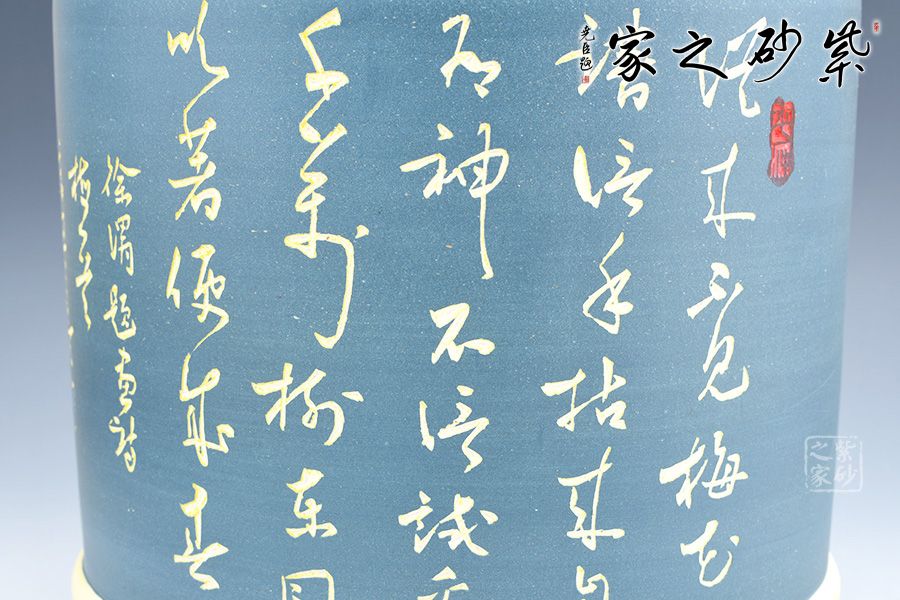 紫砂之家
尧臣题
從来不见梅花
譜信手拈来自
有神不信试看
千萬树东風
吹着便成春
徐渭题画诗
紫砂之家